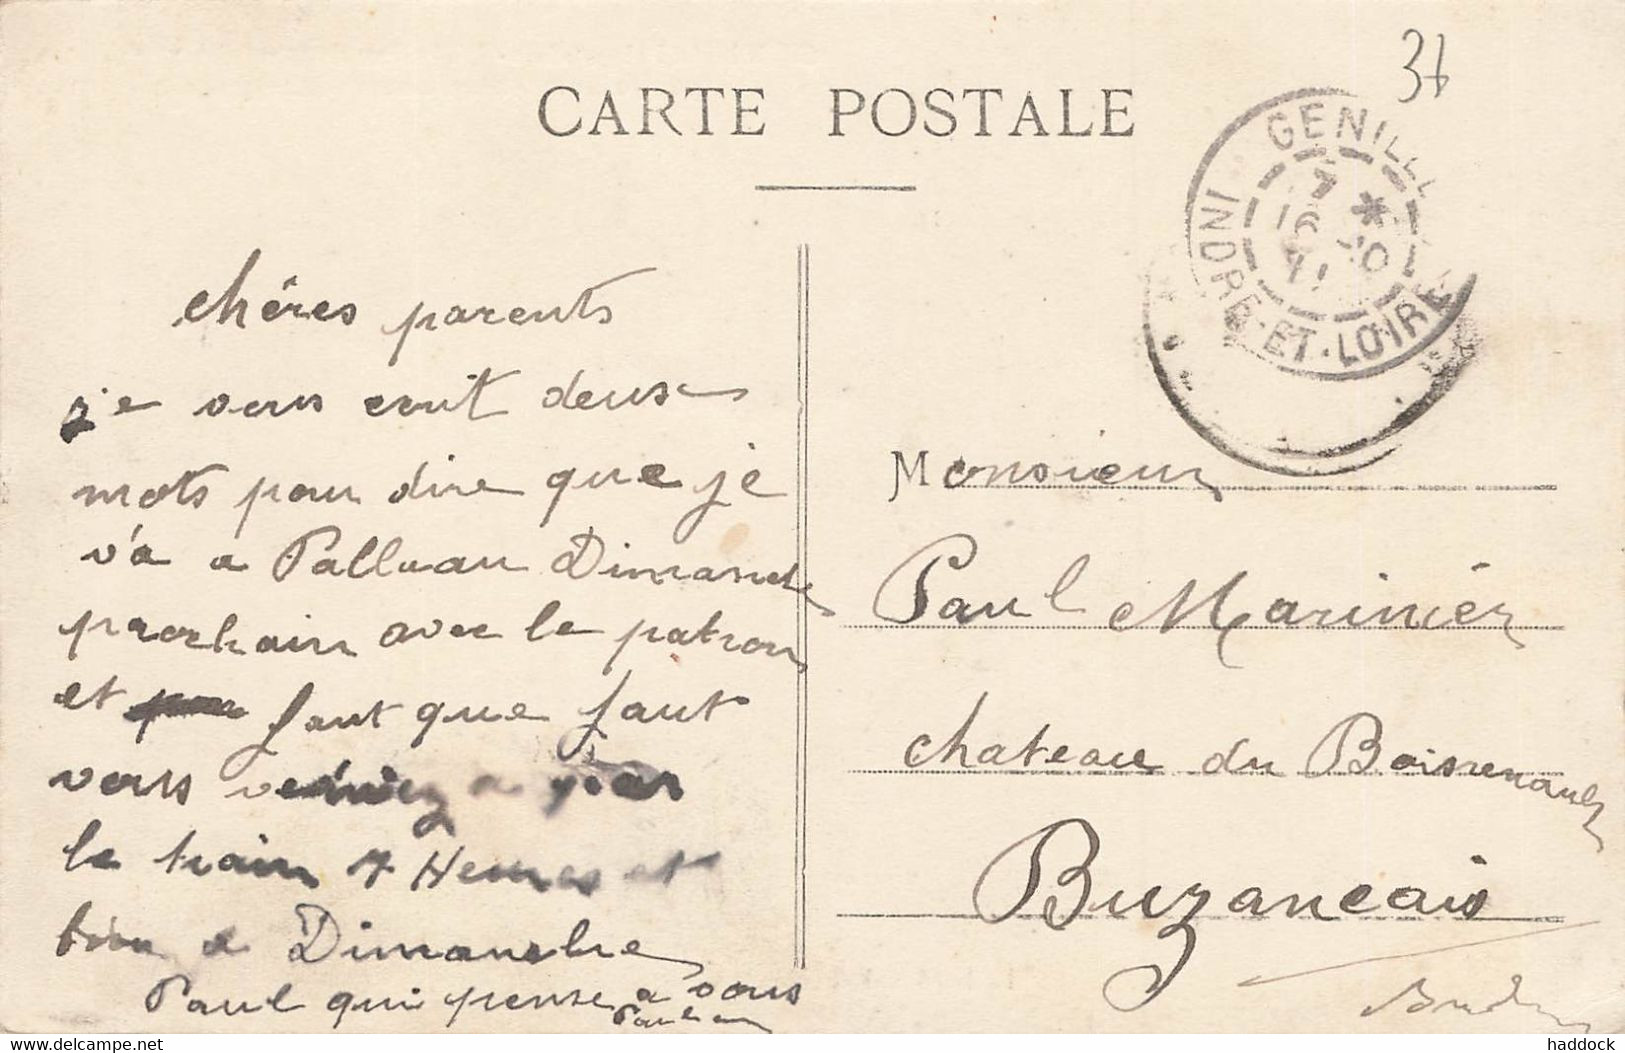 37
CARTE POSTALE
GENILL
7 *
16 10
11
INDRE-ET-LOIRE
chéres parents
je vous ecrit deux
mots pour dire que je
va a Palluau Dimanche
prochain avec le patron
et faut que faut
vous
le train 7 Heures et
bien a Dimanche
Paul qui pense a vous
Monsieur
Paul Mariniér
chateau du Boisrenault
Buzancais
delcampe.net
haddock